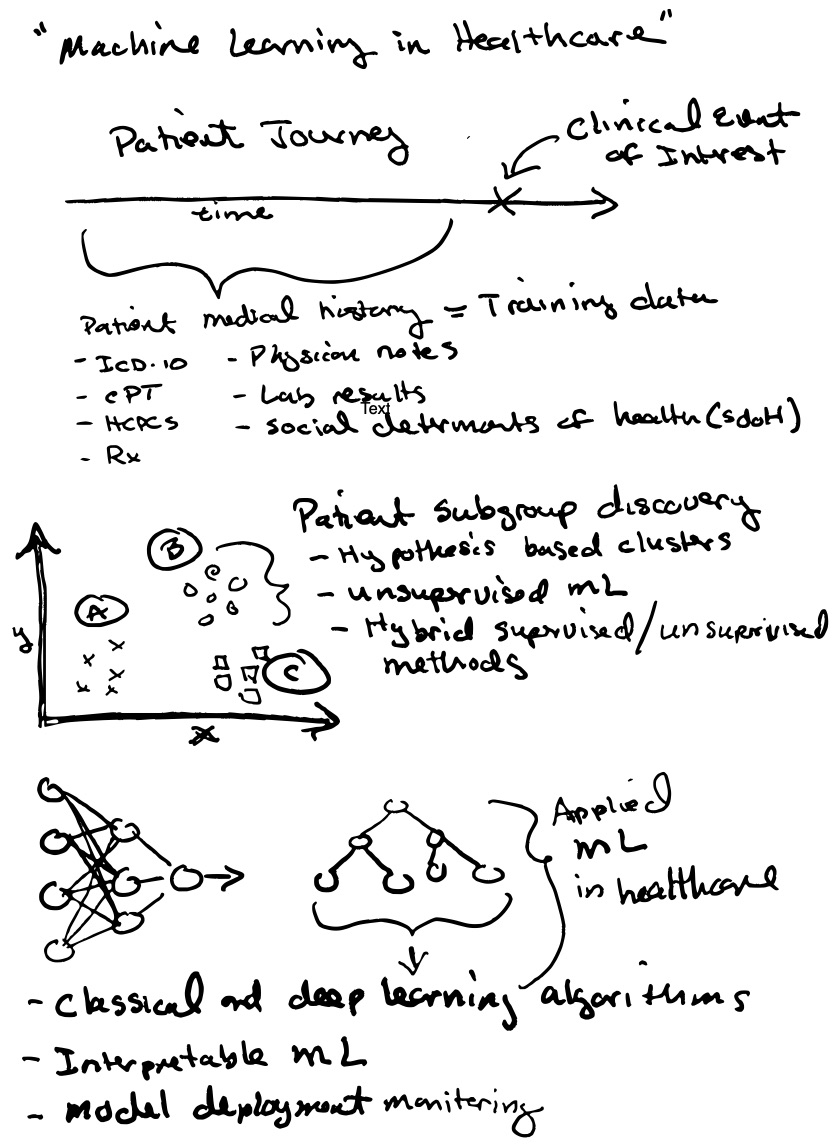 "Machine Learning in Healthcare"
Patient Journey
Clinical Event
of Intrest
time
Patient medical history = Training data
- ICD-10
- CPT
- HCPCS
- Rx
- Physician notes
- Lab results
Text
- social determants of health (SdoH)
Patient subgroup discovery
- Hypothesis based clusters
- unsupervised mL
- Hybrid supervised/unsuprivised
methods
A
B
C
y
x
Applied
mL
in healthcare
- Classical and deep learning algorithms
- Interpretable mL
- model deployment monitoring